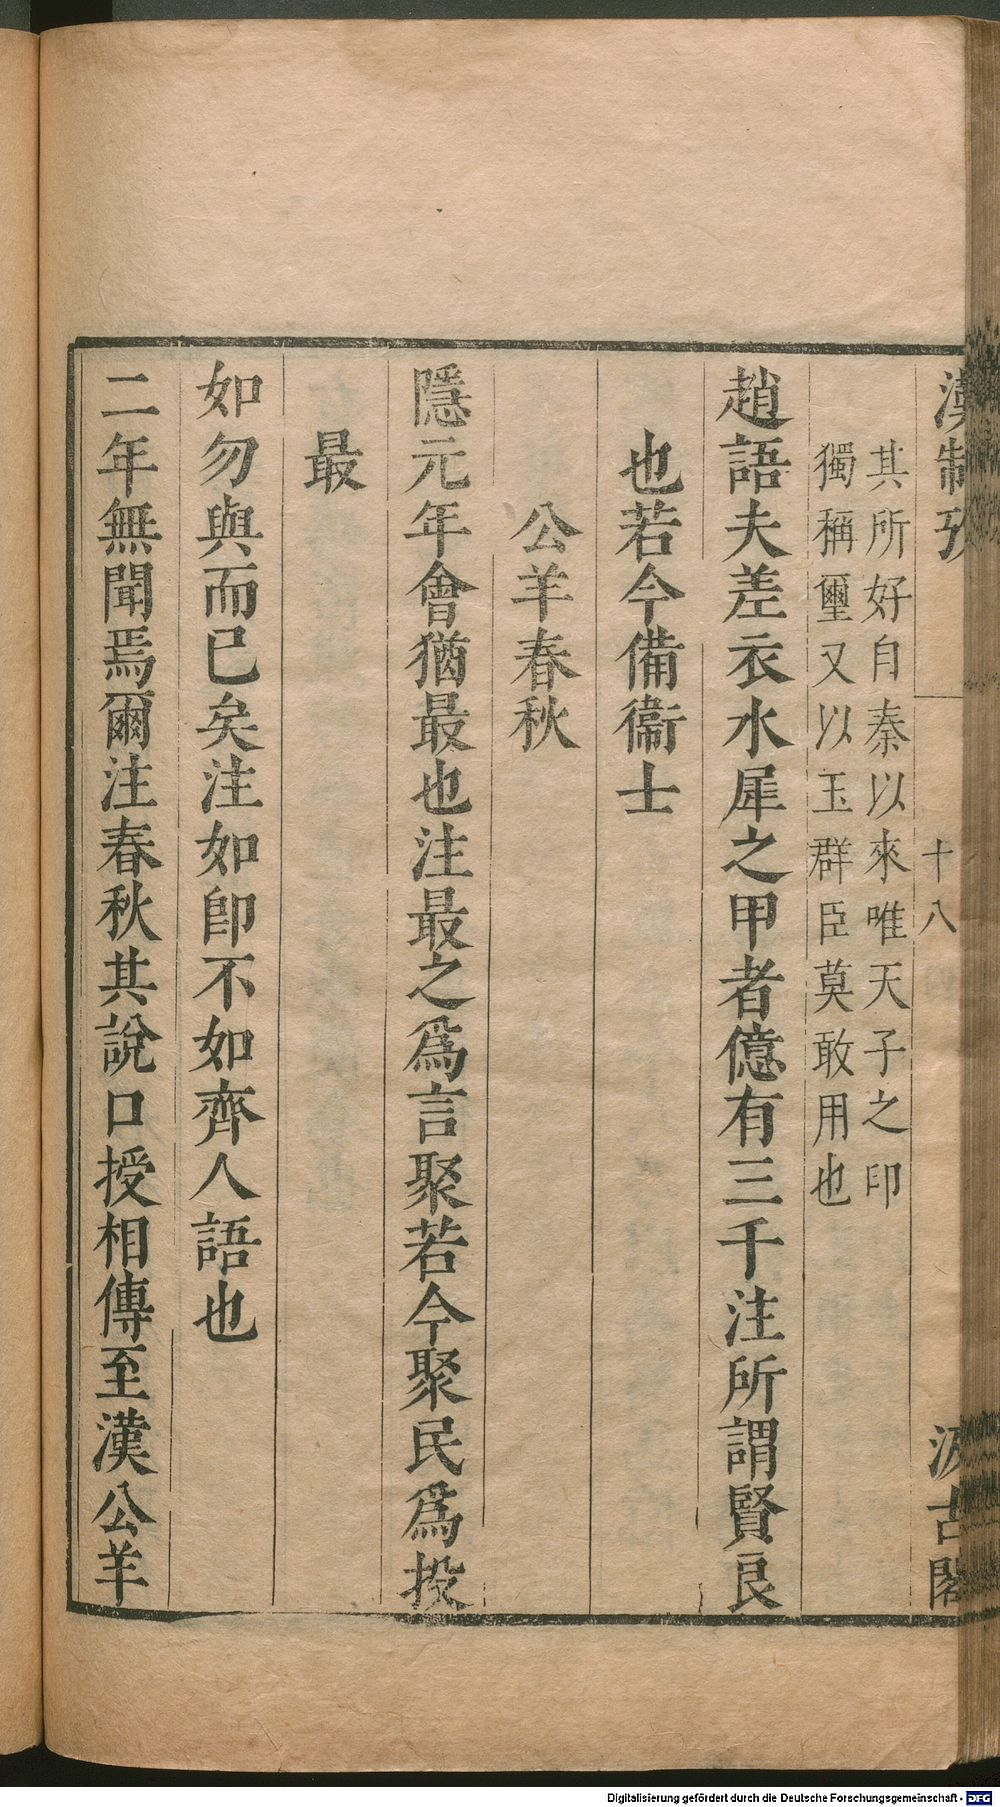 漢制攷
十八
汲古閣
其所好自秦以來唯天子之印
獨稱璽又以玉群臣莫敢用也
趙語夫差衣水犀之甲者億有三千注所謂賢良
也若今備衞士
公羊春秋
隱元年會猶最也注最之爲言聚若今聚民爲投
最
如勿與而已矣注如卽不如齊人語也
二年無聞焉爾注春秋其說口授相傳至漢公羊
Digitalisierung gefördert durch die Deutsche Forschungsgemeinschaft - DFG